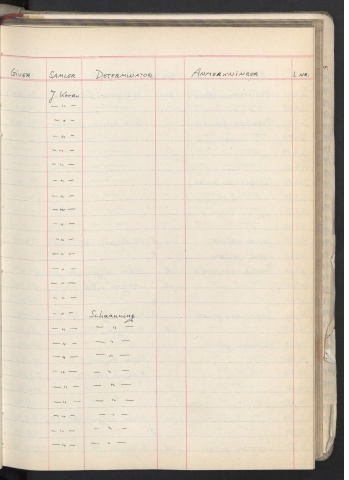 GIVER SAMLER DETERMINATOR ANMERKNINGER L.NR.
J. Koren
— " —
— " —
— " —
— " —
— " —
— " —
— " —
— " —
— " —
— " —
— " —
— " —
— " —
— " —
— " — Schaanning
— " — — " —
— " — — " —
— " — — " —
— " — — " —
— " — — " —
— " — — " —
— " — — " —
— " — — " —
— " — — " —